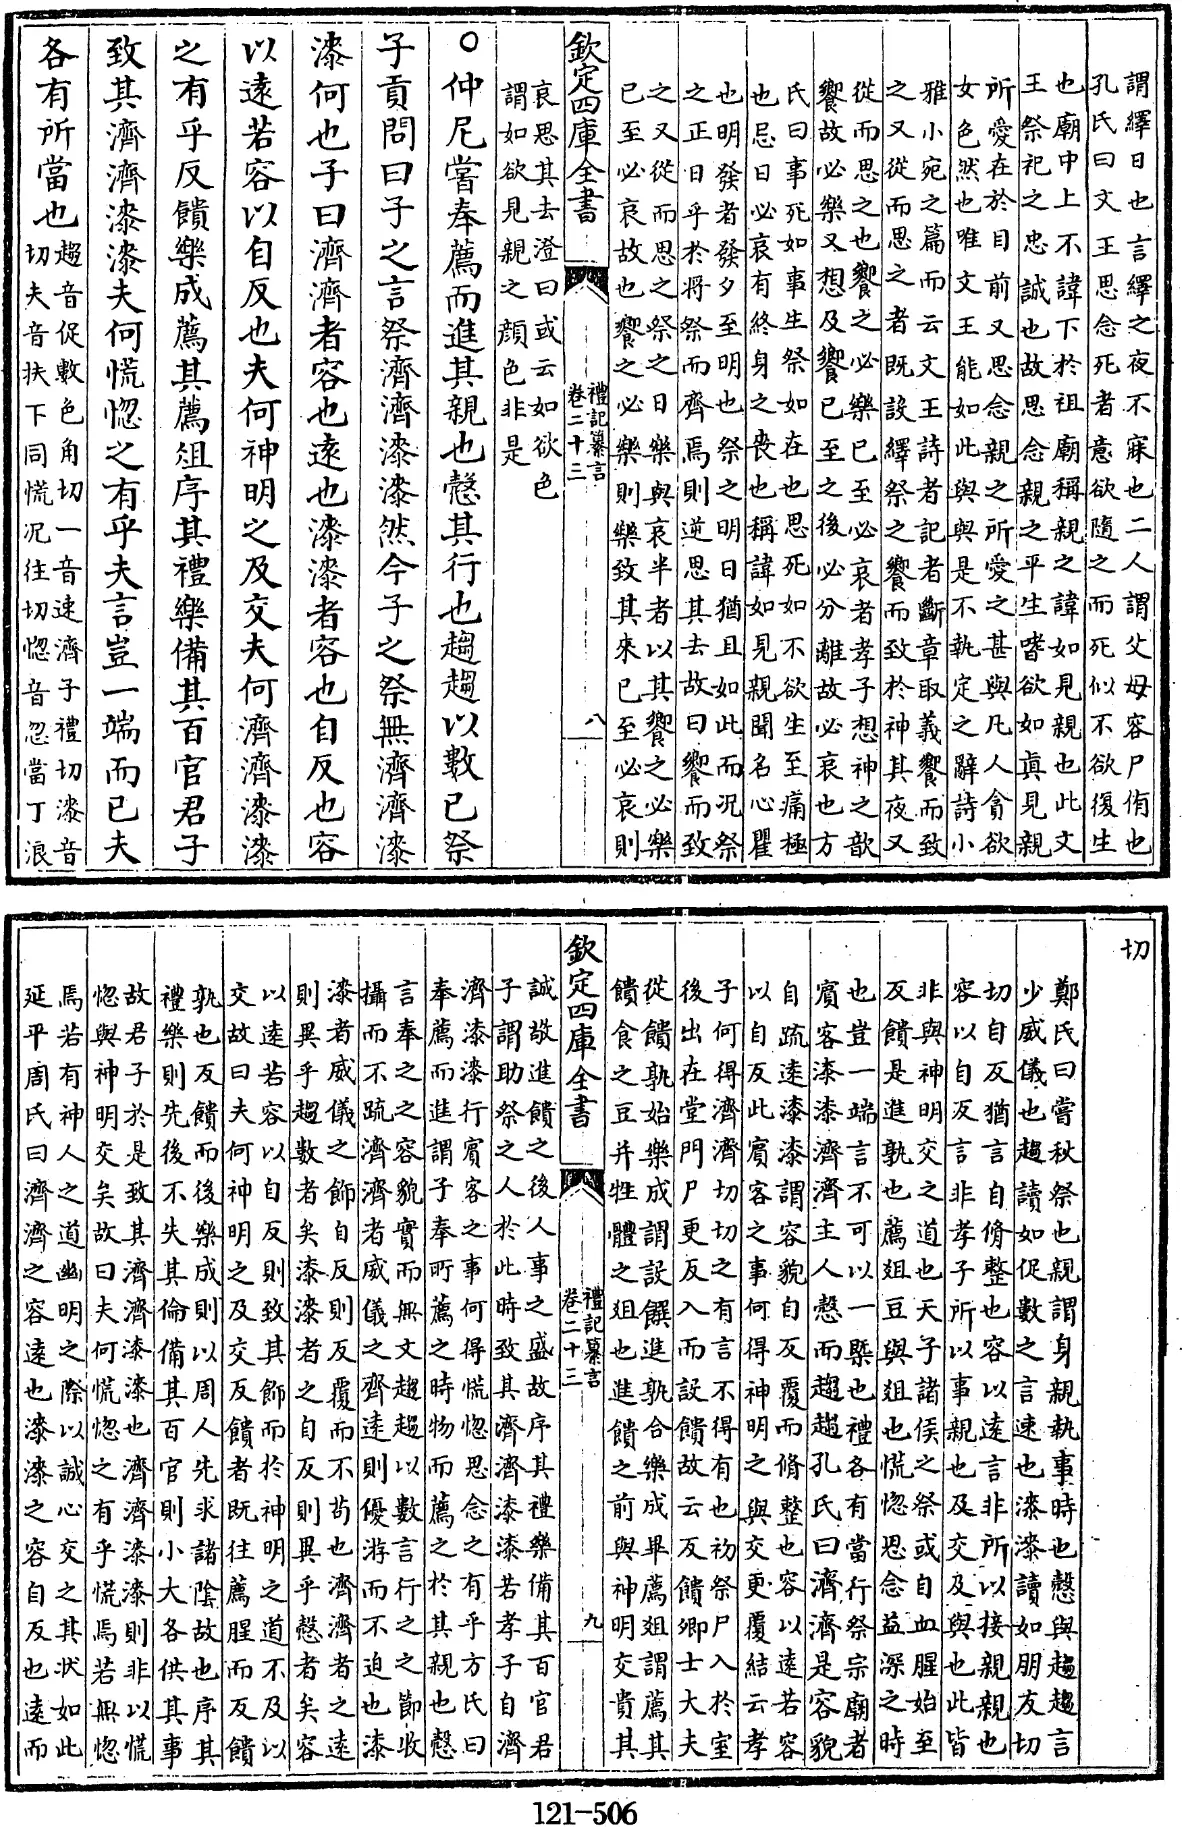 謂繹日也言繹之夜不寐也二人謂父母容尸侑也
孔氏曰文王思念死者意欲隨之而死似不欲復生
也廟中上不諱下於祖廟稱親之諱如見親也此文
王祭祀之忠誠也故思念親之平生嗜欲如真見親
所愛在於目前又思念親之所愛之甚與凡人貪欲
女色然也唯文王能如此與與是不執定之辭詩小
雅小宛之篇而云文王詩者記者斷章取義饗而致
之又從而思之者既設繹祭之饗而致於神其夜又
從而思之也饗之必樂已至必哀者孝子想神之歆
饗故必樂又想及饗已至之後必分離故必哀也方
氏曰事死如事生祭如在也思死如不欲生至痛極
也忌日必哀有終身之喪也稱諱如見親聞名心瞿
也明發者發夕至明也祭之明日猶且如此而况祭
之正日乎於將祭而齊焉則逆思其去故曰饗而致
之又從而思之祭之日樂與哀半者以其饗之必樂
已至必哀故也饗之必樂則樂致其來已至必哀則
欽定四庫全書
禮記纂言
卷二十三
八
哀思其去澄曰或云如欲色
謂如欲見親之顏色非是
○仲尼嘗奉薦而進其親也慤其行也趨趨以數已祭
子貢問曰子之言祭濟濟漆漆然今子之祭無濟濟漆
漆何也子曰濟濟者容也遠也漆漆者容也自反也容
以遠若容以自反也夫何神明之及交夫何濟濟漆漆
之有乎反饋樂成薦其薦俎序其禮樂備其百官君子
致其濟濟漆漆夫何慌惚之有乎夫言豈一端而已夫
各有所當也
趨音促數色角切一音速濟子禮切漆音
切夫音扶下同慌况往切惚音忽當丁浪
切
鄭氏曰嘗秋祭也親謂身親執事時也慤與趨趨言
少威儀也趨讀如促數之言速也漆漆讀如朋友切
切自反猶言自脩整也容以遠言非所以接親親也
容以自反言非孝子所以事親也及交及與也此皆
非與神明交之道也天子諸侯之祭或自血腥始至
反饋是進孰也薦俎豆與俎也慌惚思念益深之時
也豈一端言不可以一槩也禮各有當行祭宗廟者
賓客漆漆濟濟主人慤而趨趨孔氏曰濟濟是容貌
自疏遠漆漆謂容貌自反覆而脩整也容以遠若容
以自反此賓客之事何得神明之與交更覆結云孝
子何得濟濟切切之有言不得有也初祭尸入於室
後出在堂門尸更反入而設饋故云反饋卿士大夫
從饋孰始樂成謂設饌進孰合樂成畢薦俎謂薦其
饋食之豆并牲體之俎也進饋之前與神明交貴其
欽定四庫全書
禮記纂言
卷二十三
九
誠敬進饋之後人事之盛故序其禮樂備其百官君
子謂助祭之人於此時致其濟濟漆漆若孝子自濟
濟漆漆行賓客之事何得慌惚思念之有乎方氏曰
奉薦而進謂子奉所薦之時物而薦之於其親也慤
言奉之之容貌實而無文趨趨以數言行之之節收
攝而不疏濟濟者威儀之齊遠則優游而不迫也漆
漆者威儀之飾自反則反覆而不苟也濟濟者之遠
則異乎趨數者矣漆漆者之自反則異乎慤者矣容
以遠若容以自反則致其飾而於神明之道不及以
交故曰夫何神明之及交反饋者既往薦腥而反饋
孰也反饋而後樂成則以周人先求諸陰故也序其
禮樂則先後不失其倫備其百官則小大各供其事
故君子於是致其濟濟漆漆也濟濟漆漆則非以慌
惚與神明交矣故曰夫何慌惚之有乎慌焉若無惚
焉若有神人之道幽明之際以誠心交之其狀如此
延平周氏曰濟濟之容遠也漆漆之容自反也遠而
121-506